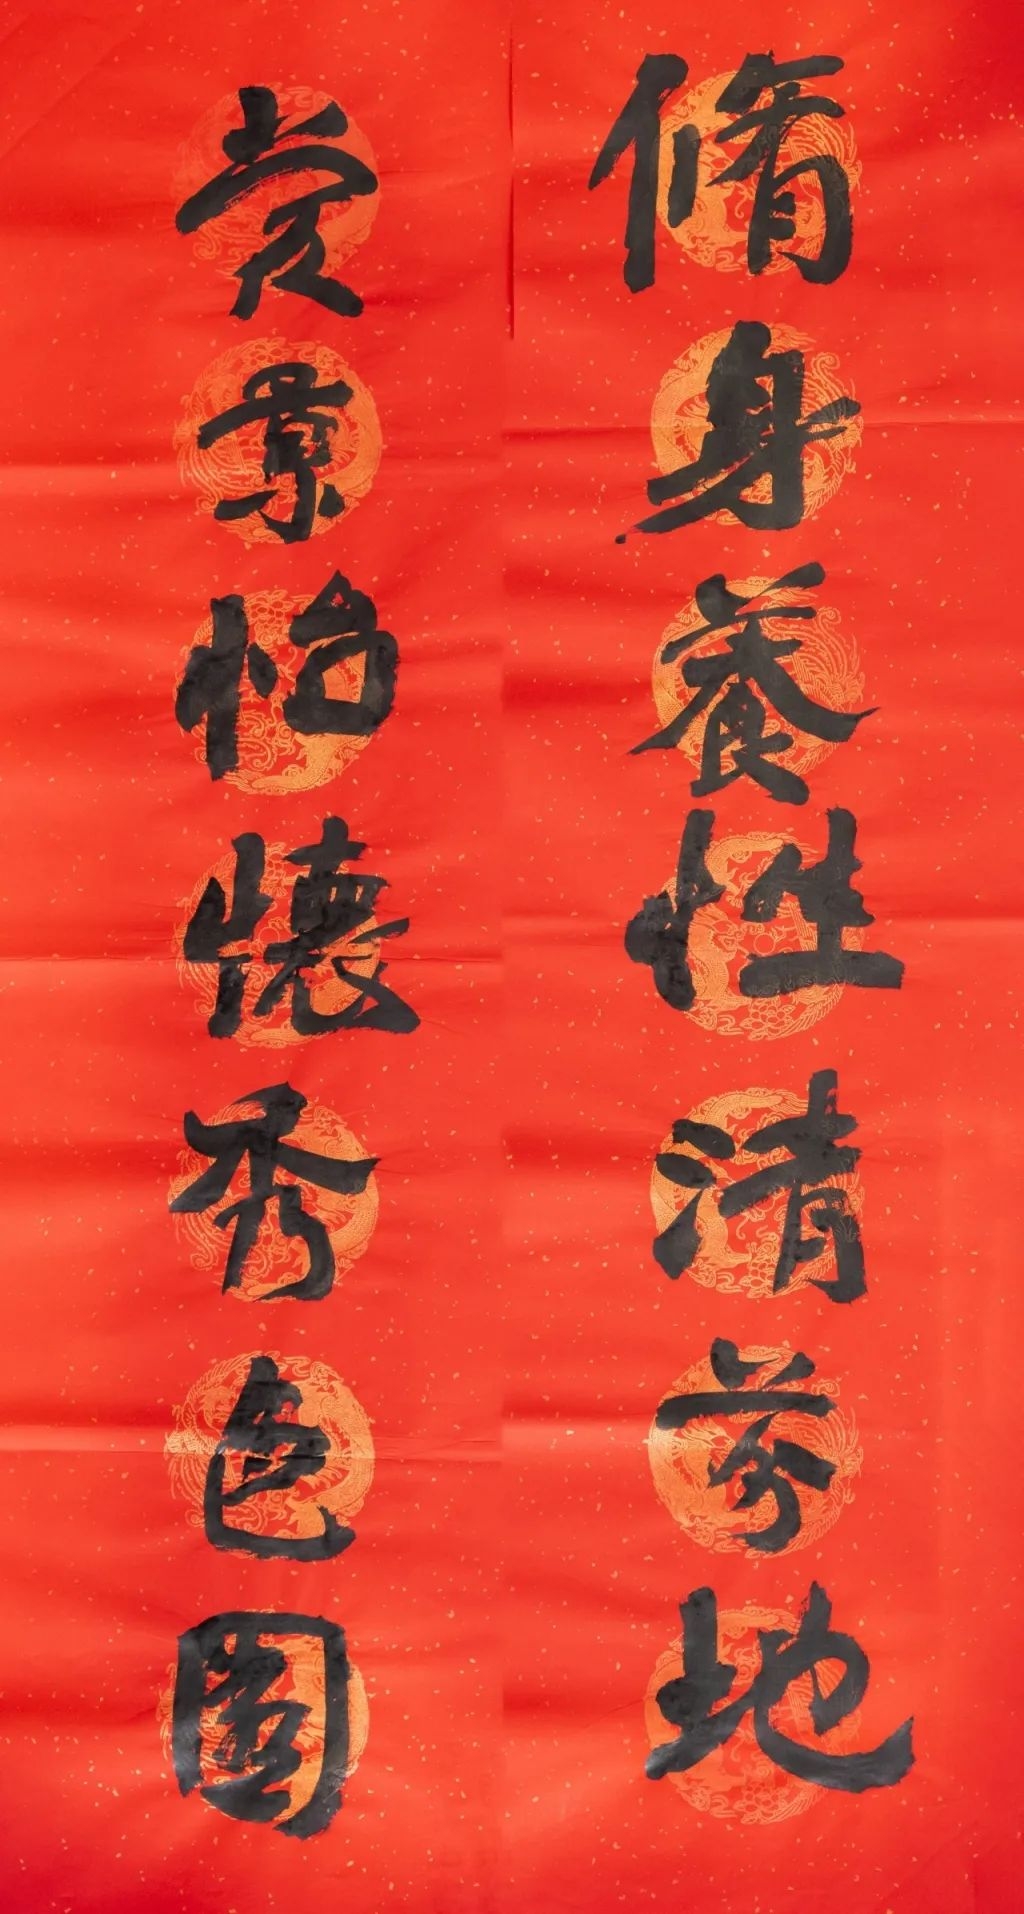 脩身養性清芬地
賞景怡懷秀色園